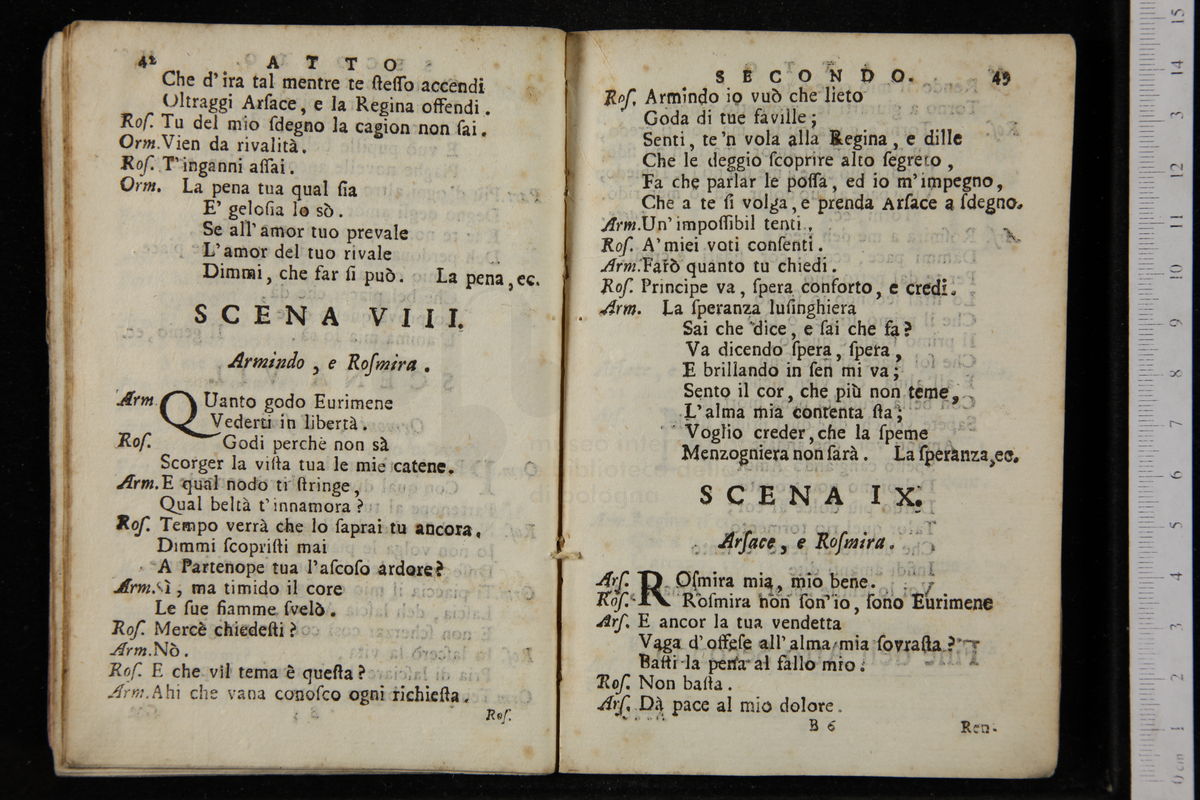 42 ATTO
Che d'ira tal mentre te ſteſſo accendi
Oltraggi Arſace, e la Regina offendi.
Roſ. Tu del mio ſdegno la cagion non ſai.
Orm. Vien da rivalità.
Roſ. T'inganni aſſai.
Orm. La pena tua qual ſia
E' geloſia lo sò.
Se all'amor tuo prevale
L'amor del tuo rivale
Dimmi, che far ſi può. La pena, ec.
SCENA VIII.
Armindo, e Roſmira.
Arm. QUanto godo Eurimene
Vederti in libertà.
Roſ. Godi perchè non sà
Scorger la viſta tua le mie catene.
Arm. E qual nodo ti ſtringe,
Qual beltà t'innamora?
Roſ. Tempo verrà che lo ſaprai tu ancora.
Dimmi ſcopriſti mai
A Partenope tua l'aſcoſo ardore?
Arm. Sì; ma timido il core
Le ſue fiamme ſvelò.
Roſ. Mercè chiedeſti?
Arm. Nò.
Roſ. E che vil tema è queſta?
Arm. Ahi che vana conoſco ogni richieſta.
Roſ.
SECONDO. 43
Roſ. Armindo io vuò che lieto
Goda di tue faville;
Senti, te'n vola alla Regina, e dille
Che le deggio ſcoprire alto ſegreto,
Fa che parlar le poſſa, ed io m'impegno,
Che a te ſi volga, e prenda Arſace a ſdegno.
Arm. Un'impoſſibil tenti.
Roſ. A'miei voti conſenti.
Arm. Farò quanto tu chiedi.
Roſ. Principe va, ſpera conforto, e credi.
Arm. La ſperanza luſinghiera
Sai che dice, e ſai che fa?
Va dicendo ſpera, ſpera,
E brillando in ſen mi va;
Sento il cor, che più non teme,
L'alma mia contenta ſta;
Voglio creder, che la ſpeme
Menzogniera non ſarà. La ſperanza, ec.
SCENA IX.
Arſace, e Roſmira.
Arſ. ROſmira mia, mio bene.
Roſ. Roſmira non ſon'io, ſono Eurimene
Arſ. E ancor la tua vendetta
Vaga d'offeſe all'alma mia ſovraſta?
Baſti la pena al fallo mio.
Roſ. Non baſta.
Arſ. Dà pace al mio dolore.
B 6 Ren-